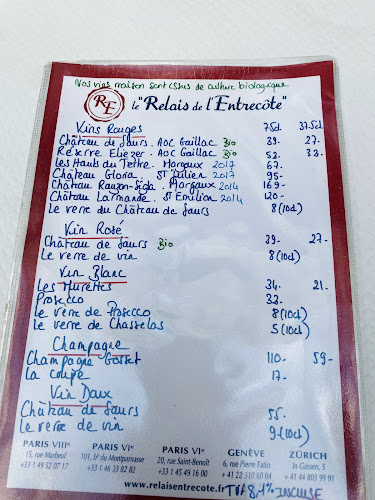 Nos vins maison sont issus de culture biologique
RE le "Relais de l'Entrecôte"
Vins Rouges 75cl. 37.5cl
Château de Saurs. AOC Gaillac Bio 39. 27-
Réserve Eliezer. AOC Gaillac Bio 52. 33-
Les Hauts du Tertre. Margaux 2017 67.
Château Gloria. St Julien 2017 95-
Château Rauzan-Ségla. Margaux 2014 169-
Château Larmande. St Emilion 2014 120-
Le verre du Château de Saurs 8 (10cl)
Vin Rosé
Château de Saurs Bio 39- 27-
Le verre de vin 8 (10cl)
Vin Blanc
Les Murettes 34. 21-
Prosecco 33-
Le verre de Prosecco 8 (10cl)
Le verre de Chasselas 5 (10cl)
Champagne
Champagne Gosset 110- 59-
La coupe 17-
Vin Doux
Château de Saurs 55-
Le verre de vin 9- (10cl)
PARIS VIIIe PARIS VIe PARIS VIe GENÈVE ZÜRICH
15, rue Marbeuf 101, bd du Montparnasse 20, rue Saint-Benoît 6, rue Pierre Fatio In Gassen, 5
+33 1 49 52 07 17 +33 1 46 33 82 82 +33 1 45 49 16 00 + 41 22 310 60 04 + 41 44 803 99 91
www.relaisentrecote.fr TVA 8,1% INCLUSE